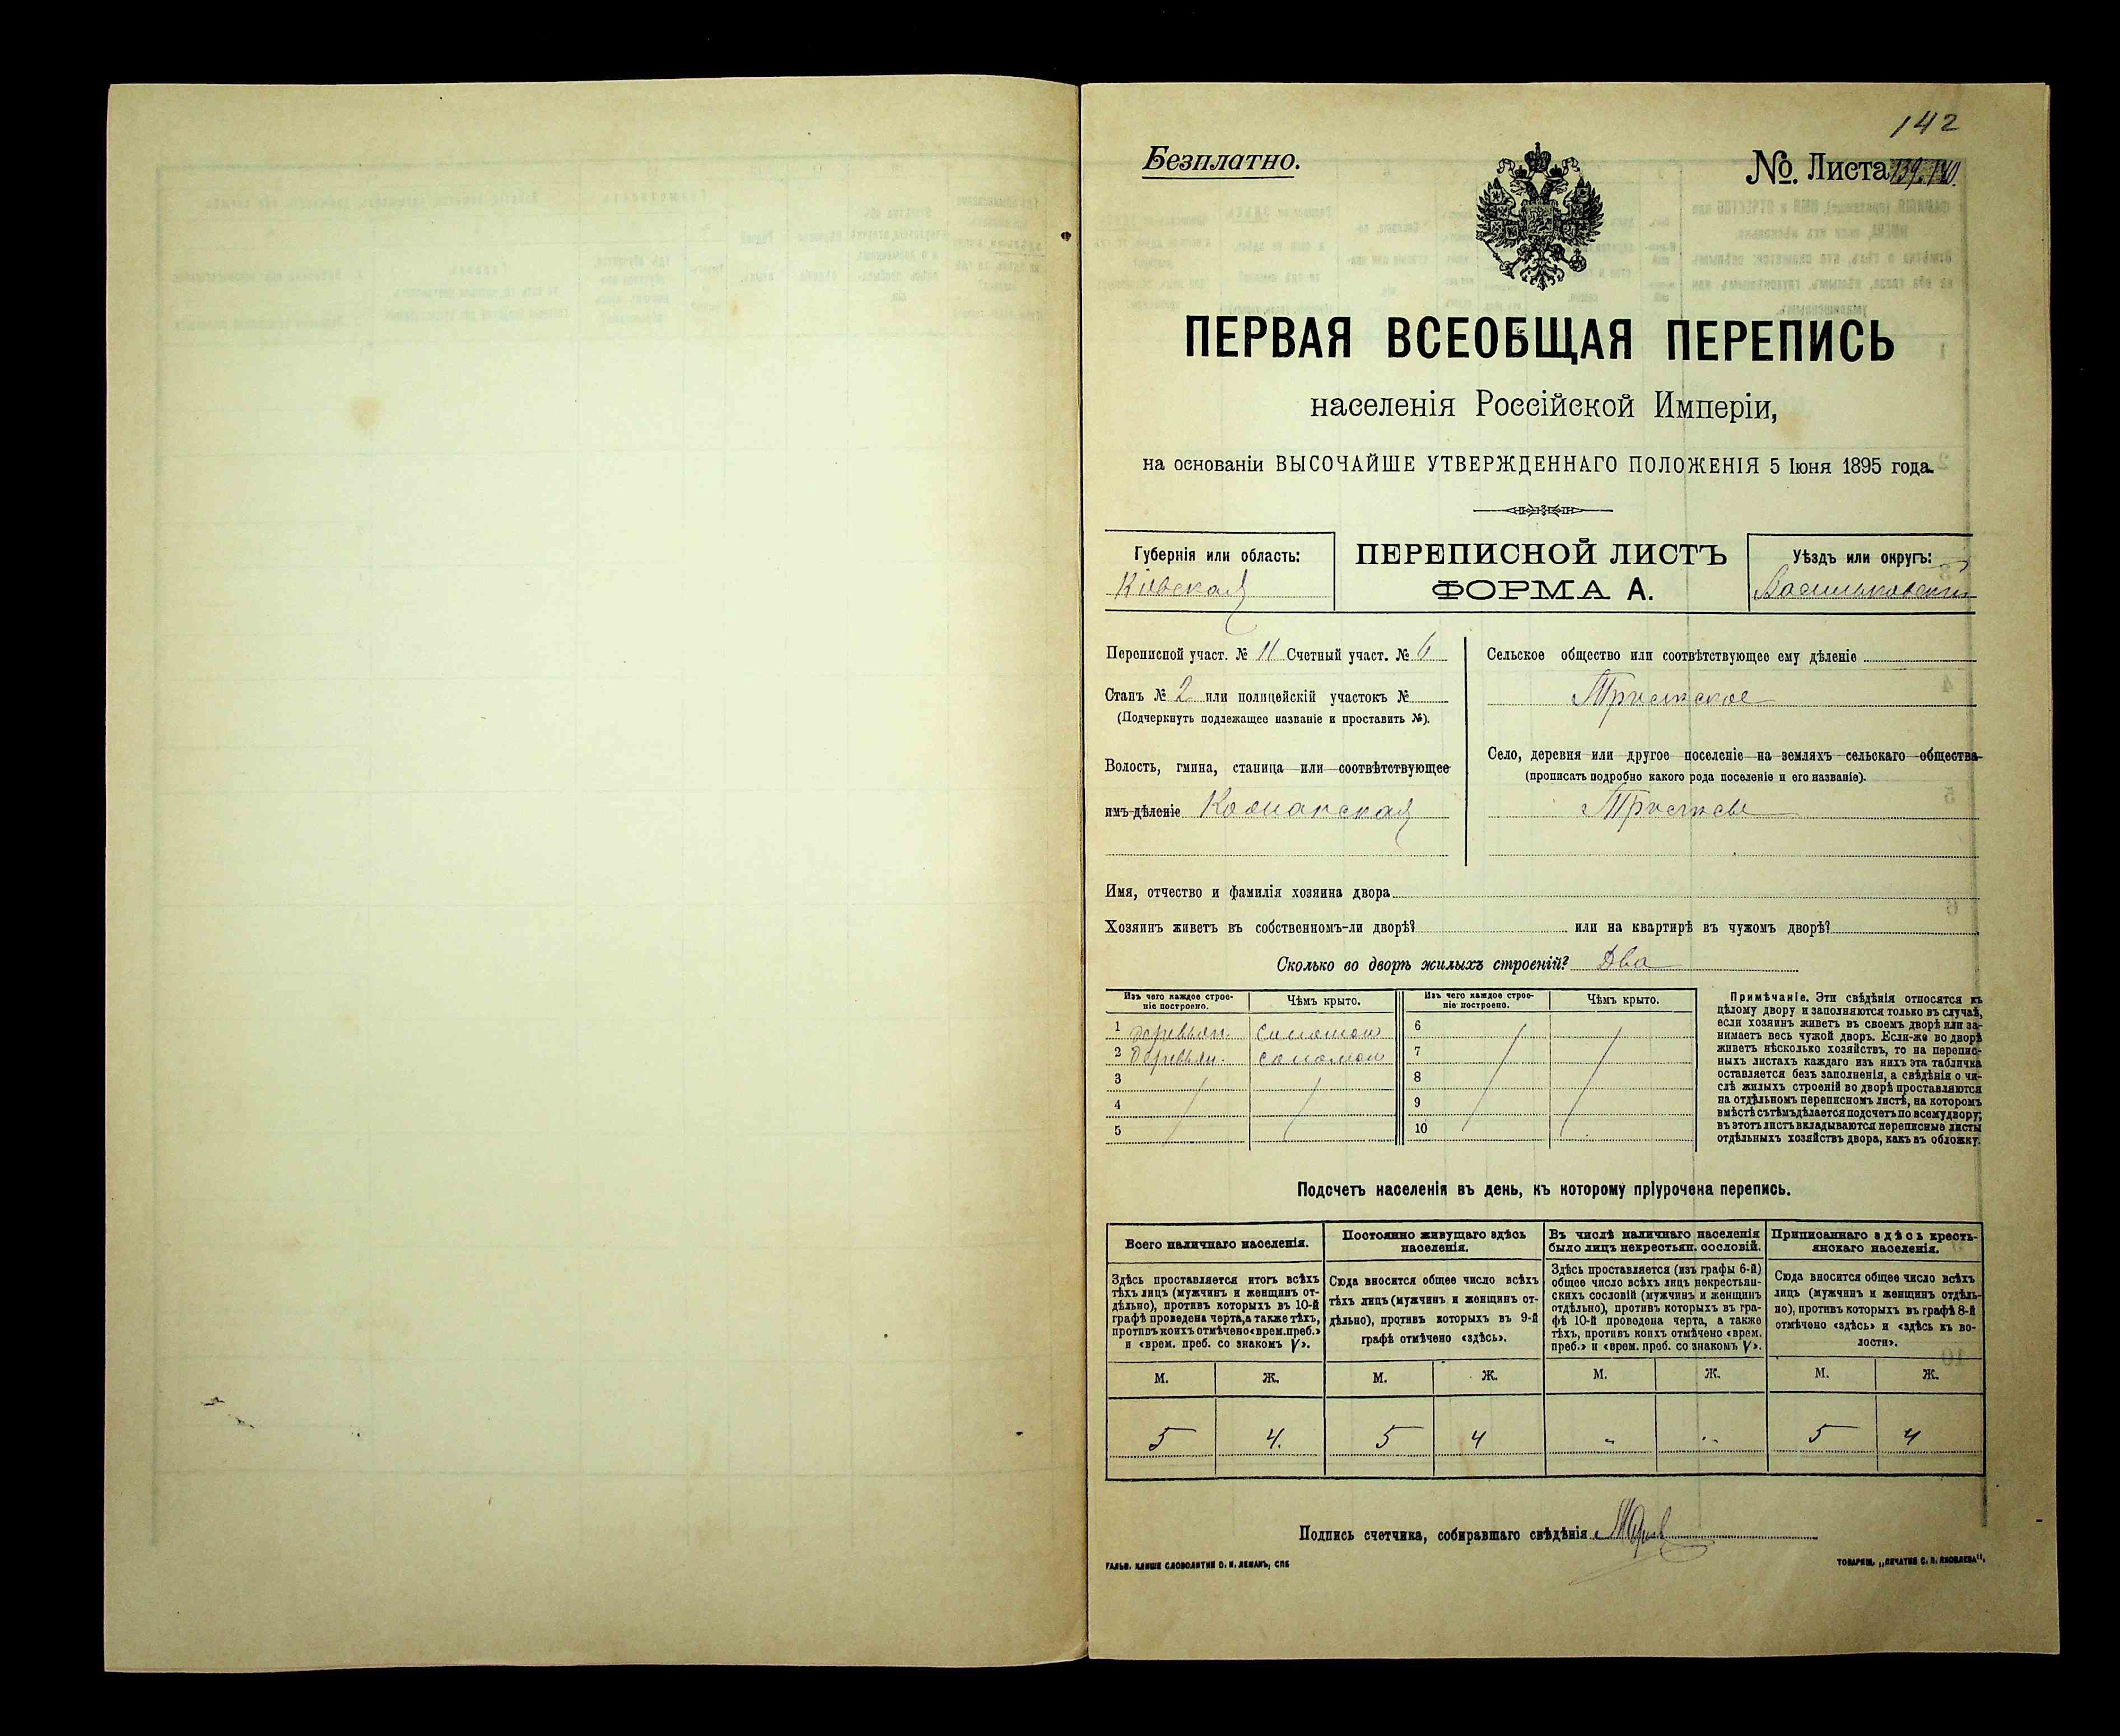 142
Безплатно.
№. Листа 139-140.
ПЕРВАЯ ВСЕОБЩАЯ ПЕРЕПИСЬ
населенія Россійской Имперіи,
на основаніи ВЫСОЧАЙШЕ УТВЕРЖДЕННАГО ПОЛОЖЕНІЯ 5 Іюня 1895 года.
Губернія или область:
Кіевская
ПЕРЕПИСНОЙ ЛИСТЪ
ФОРМА А.
Уѣздъ или округъ:
Васильковскій
Переписной участ. № 11 Счетный участ. № 6
Станъ № 2 или полицейскій участокъ №
(Подчеркнуть подлежащее названіе и проставить №).
Волость, гмина, станица или соотвѣтствующее
имъ дѣленіе
Сельское общество или соотвѣтствующее ему дѣленіе
Трилѣское
Село, деревня или другое поселеніе на земляхъ сельскаго общества
(прописать подробно какого рода поселеніе и его названіе).
Имя, отчество и фамилія хозяина двора
Хозяинъ живетъ въ собственномъ-ли дворѣ? или на квартирѣ въ чужомъ дворѣ?
Сколько во дворѣ жилыхъ строеній? Два
Изъ чего каждое строе-
ніе построено.
Чѣмъ крыто.
Изъ чего каждое строе-
ніе построено.
Чѣмъ крыто.
1 Деревян. соломой 6
2 Деревян. соломой 7
3 8
4 9
5 10
Примѣчаніе. Эти свѣдѣнія относятся къ
цѣлому двору и заполняются только въ случаѣ,
если хозяинъ живетъ въ своемъ дворѣ или за-
нимаетъ весь чужой дворъ. Если-же во дворѣ
живетъ нѣсколько хозяйствъ, то на перепис-
ныхъ листахъ каждаго изъ нихъ эта табличка
оставляется безъ заполненія, а свѣдѣнія о чи-
слѣ жилыхъ строеній во дворѣ проставляются
на отдѣльномъ переписномъ листѣ, на которомъ
вмѣстѣ съ тѣмъ дѣлается подсчетъ по всему двору;
въ этотъ листъ вкладываются переписные листы
отдѣльныхъ хозяйствъ двора, какъ въ обложку.
Подсчетъ населенія въ день, къ которому пріурочена перепись.
Всего наличнаго населенія.
Постоянно живущаго здѣсь
населенія.
Въ числѣ наличнаго населенія
было лицъ некрестьян. сословій.
Приписаннаго здѣсь кресть-
янскаго населенія.
Здѣсь проставляется итогъ всѣхъ
тѣхъ лицъ (мужчинъ и женщинъ от-
дѣльно), противъ которыхъ въ 10-й
графѣ проведена черта, а также тѣхъ,
противъ коихъ отмѣчено «врем. преб.»
и «врем. преб. со знакомъ V».
Сюда вносится общее число всѣхъ
тѣхъ лицъ (мужчинъ и женщинъ от-
дѣльно), противъ которыхъ въ 9-й
графѣ отмѣчено «здѣсь».
Здѣсь проставляется (изъ графы 6-й)
общее число всѣхъ лицъ некрестьян-
скихъ сословій (мужчинъ и женщинъ
отдѣльно), противъ которыхъ въ гра-
фѣ 10-й проведена черта, а также
тѣхъ, противъ коихъ отмѣчено «врем.
преб.» и «врем. преб. со знакомъ V».
Сюда вносится общее число всѣхъ
лицъ (мужчинъ и женщинъ отдѣль-
но), противъ которыхъ въ графѣ 8-й
отмѣчено «здѣсь» и «здѣсь къ во-
лости».
М. Ж. М. Ж. М. Ж. М. Ж.
5 4. 5 4 - - 5 4
Подпись счетчика, собиравшаго свѣдѣнія
ГАЛЬВ. КЛИШЕ СЛОВОЛИТНИ О. И. ЛЕМАНЪ, СПБ
ТОВАРИЩ. „ПЕЧАТНЯ С. П. ЯКОВЛЕВА".